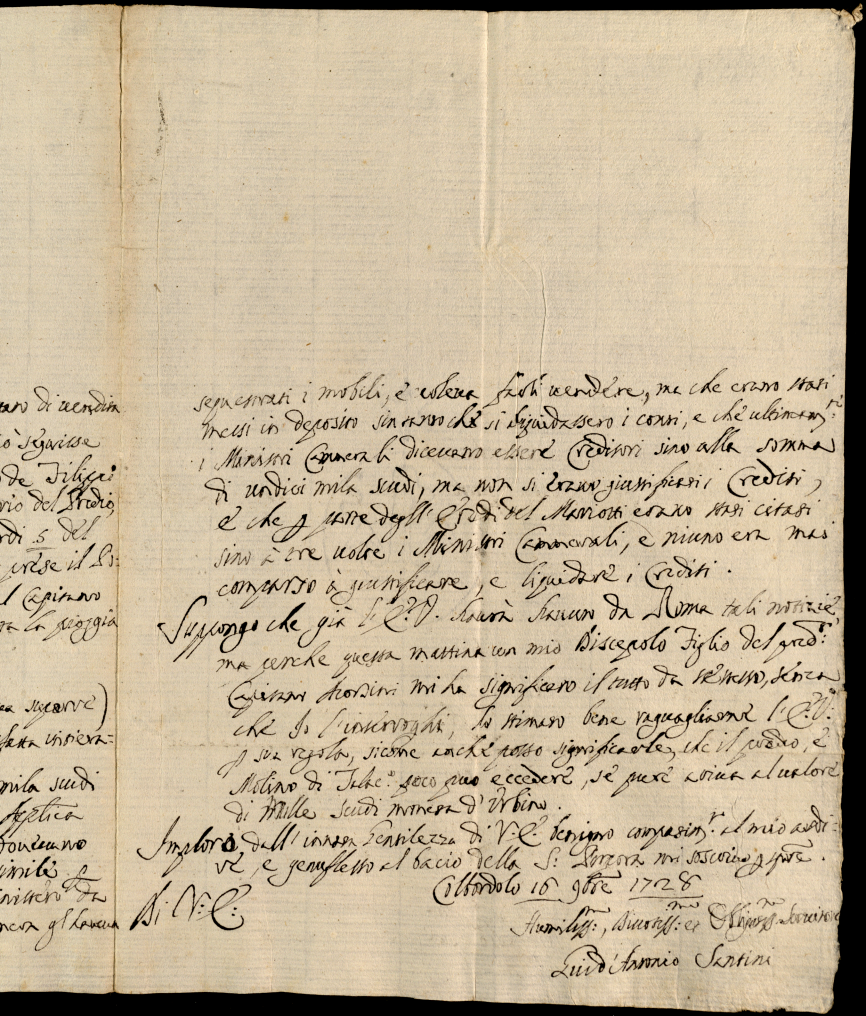 tato di uendita
iò seguisse
de Filippi
rio del Predio
rdi 5 del
prese il Po:
l Capitano
ra la pioggia
ea saperue)
fatta uisiera=
mila scudi
Replica
doueuano
simile
ministero da
nera gl'haueua
sequestrati i mobili, e uoleua farli uendere, ma che erano stati
messi in deposito sin tanto che si liquidassero i conti, e che ultimam.te
i Ministri Camerali diceuano essere Creditori sino alla somma
di undici mila scudi, ma non si erano giustificati i Crediti,
e che p parte degli Eredi del Mariotti erano stati citati
sino à tre uolte i Ministri Camerali, e niuno era mai
comparso à giustificare, e liquidare i Crediti.
Suppongo che già l'E.V. haurà hauuto da Roma tali notizie
ma perche questa mattina un mio Discepolo Figlio del pred.o
Capitano mi ha significato il tutto da se stesso, senza
che Io l'interroghi, ho stimato bene ragguagliarne l'E.V.
p sua regola, sicome anche posso significarle, che il predio, e
Molino di poco puo eccedere, se pure arriua al ualore
di Mille Scudi moneta d'Urbino.
Imploro dall'innata Gentilezza di V.E. benigno compatim.to al mio ardi=
re, e genuflesso al bacio della S. Porpora mi soscriuo p sempre.
Colbordolo 16 9bre 1728
Di V.E.
Humiliss.mo, Diuotiss.mo et Obligatiss.mo Seruitore
Guid'Antonio Santini